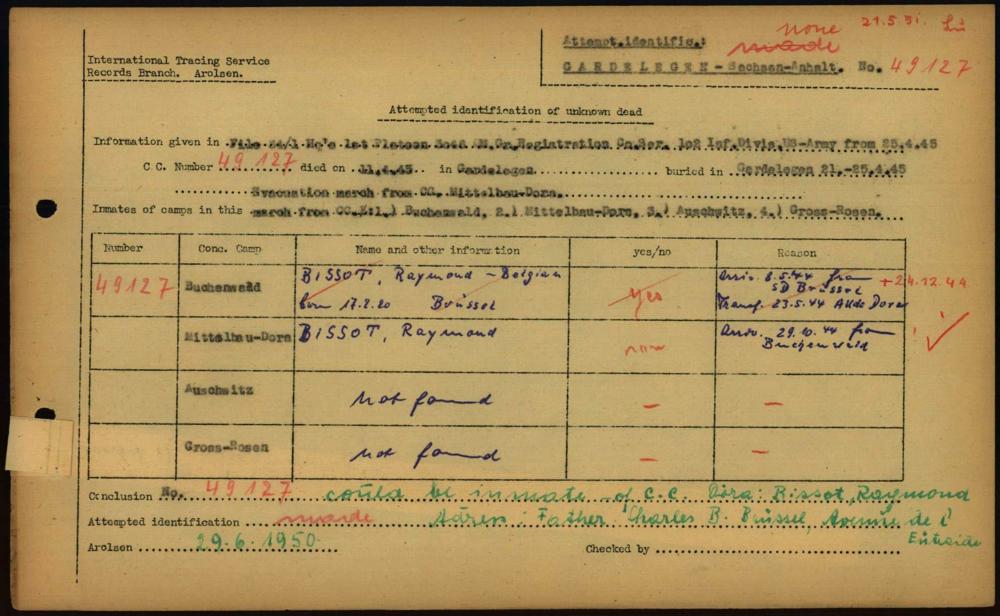 none 21.5.51.
Attempt.identific.: made
International Tracing Service
Records Branch. Arolsen.
GARDELEGEN - Sachsen-Anhalt. No. 49127
Attempted identification of unknown dead
Information given in File 54/1 Hq's 1st Platoon 3048 QM Gr.Registration Co.Ser. 102 Inf.Divis.US-Army from 25.4.45
C.C. Number 49127 died on 11.4.45 in Gardelegen buried in Gardelegen 21.-25.4.45
Evacuation march from CC. Mittelbau-Dora.
Inmates of camps in this march from CC.K:1.) Buchenwald, 2.) Mittelbau-Dora, 3.) Auschwitz, 4.) Gross-Rosen.
Number Conc. Camp Name and other information yes/no Reason
49127 Buchenwald BISSOT, Raymond - Belgian yes Arriv. 8.5.44 from +24.12.44
born 17.2.20 Brüssel SD Brüssel
Transf. 23.5.44 Akdo Dora
Mittelbau-Dora BISSOT, Raymond Arriv. 29.10.44 from
Buchenwald
Auschwitz not found - -
Gross-Rosen not found - -
Conclusion No. 49127 could be inmate of C.C. Dora: Bissot, Raymond
Attempted identification made Adress: Father Charles B. Brüssel, Avenue de l'
Arolsen 29.6.1950. Checked by